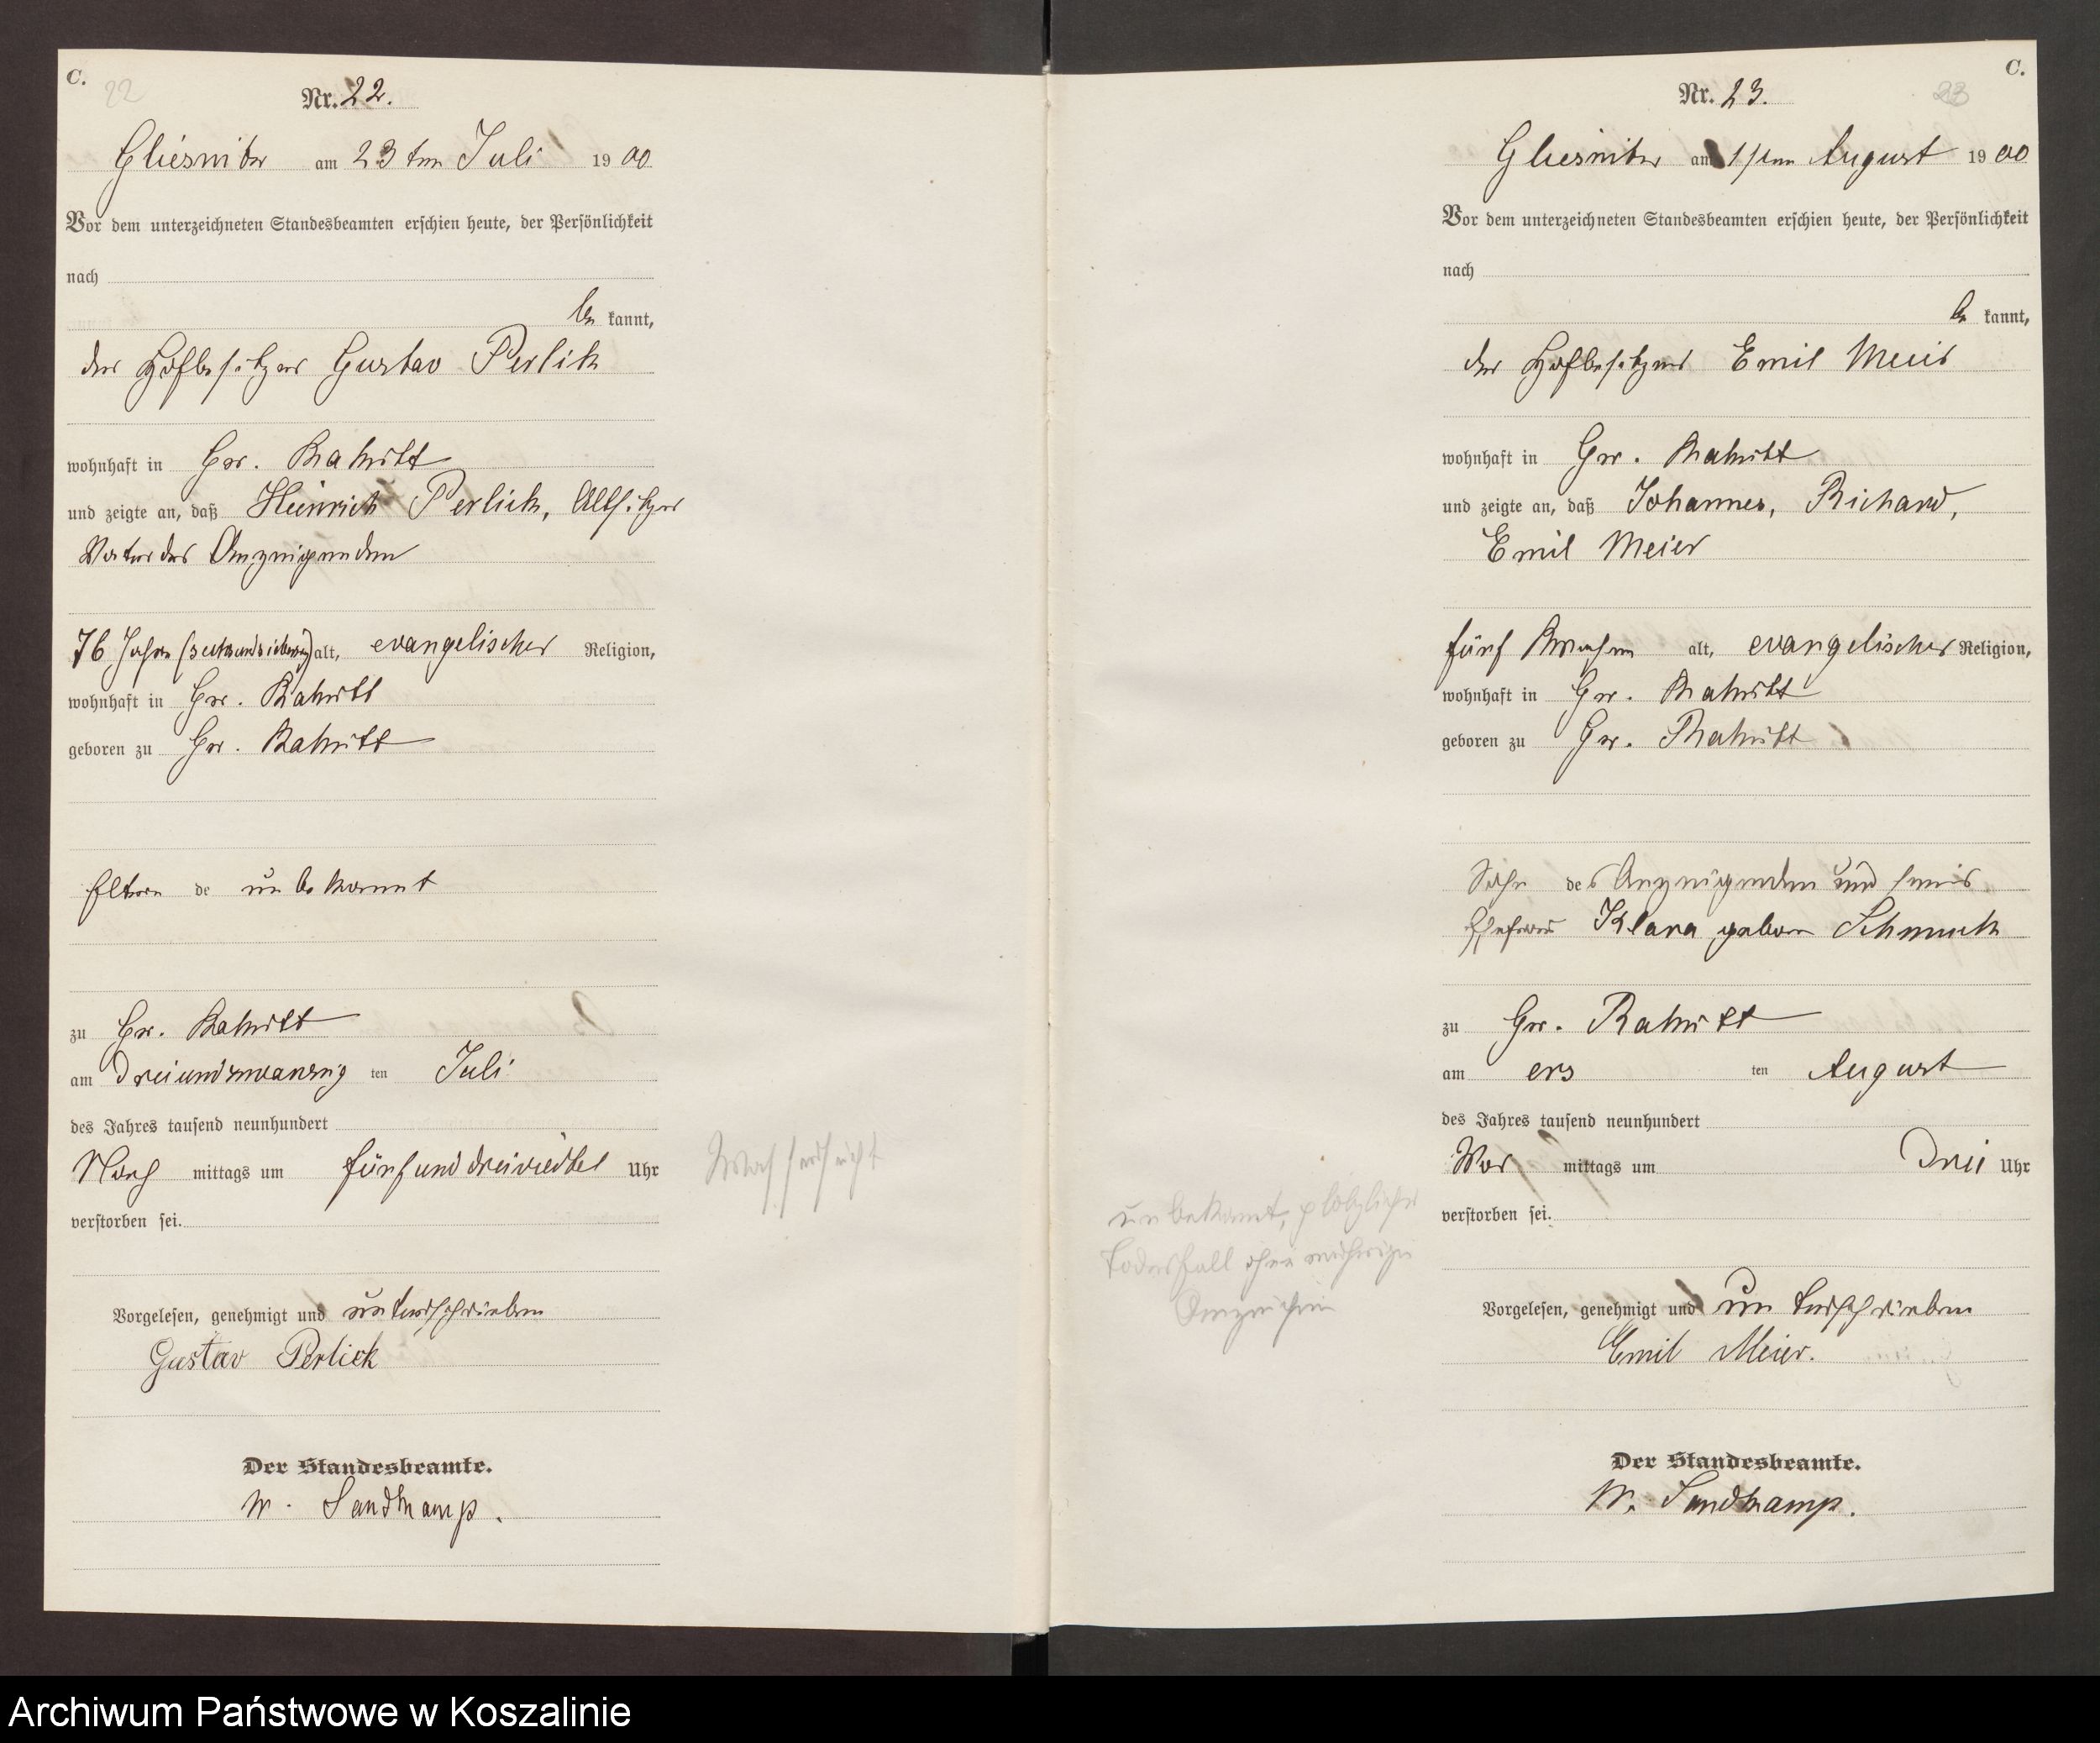 C.
22
Nr. 22.
Gliesnitz am 23ten Juli 1900
Vor dem unterzeichneten Standesbeamten erschien heute, der Persönlichkeit
nach
be kannt,
der Hofbesitzer Gustav Perlick
wohnhaft in Gr. Rakitt
und zeigte an, daß Heinrich Perlick, Altsitzer
Vater des Anzeigenden
76 Jahre (sechsundsiebenzig) alt, evangelischer Religion,
wohnhaft in Gr. Rakitt
geboren zu Gr. Rakitt
Eltern de unbekannt
zu Gr. Rakitt
am dreiundzwanzig ten Juli
des Jahres tausend neunhundert
Nach mittags um fünf und dreiviertel Uhr
verstorben sei.
Vorgelesen, genehmigt und unterschrieben
Gustav Perlick
Der Standesbeamte.
W. Sandkamp.
C.
23
Nr. 23.
Gliesnitz am 1sten August 1900
Vor dem unterzeichneten Standesbeamten erschien heute, der Persönlichkeit
nach
be kannt,
der Hofbesitzer Emil Meier
wohnhaft in Gr. Rakitt
und zeigte an, daß Johannes, Richard,
Emil Meier
fünf Wochen alt, evangelischer Religion,
wohnhaft in Gr. Rakitt
geboren zu Gr. Rakitt
Sohn des Anzeigenden und seiner
Ehefrau Klara geborn Schmuck
zu Gr. Rakitt
am ers ten August
des Jahres tausend neunhundert
Vor mittags um Drei Uhr
verstorben sei.
unbekannt, plötzlicher
Todesfall ohne
Anzeichen
Vorgelesen, genehmigt und unterschrieben
Emil Meier.
Der Standesbeamte.
W. Sandkamp.
Archiwum Państwowe w Koszalinie